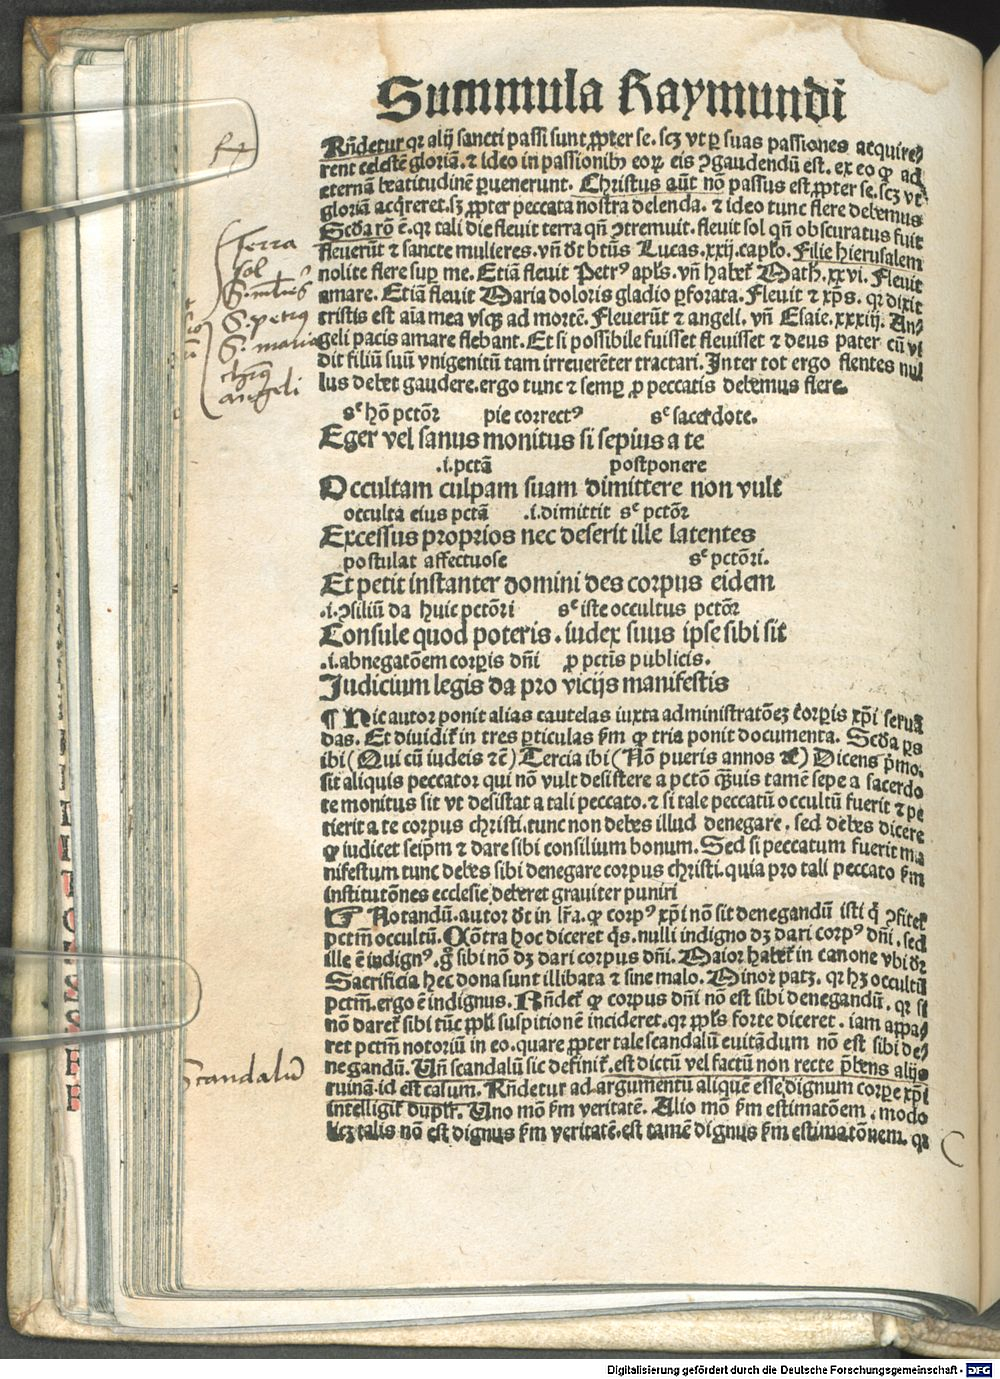 Summula Raymundi
Rn̄detur qꝛ alij sancti passi sunt ꝓpter se. scꝫ vt ꝑ suas passiones acquire⸗
rent celestē gloriā. ⁊ ideo in passionibꝰ eoꝝ eis ↄgaudendū est. ex eo ꝙ ad
eternā beatitudinē ꝑuenerunt. Christus aūt nō passus est ꝓpter se. scꝫ vt
gloriā acq̄reret. sꝫ ꝓpter peccata nostra delenda. ⁊ ideo tunc flere debemus
Scd̄a ro ē. qꝛ tali die fleuit terra qn̄ ↄtremuit. fleuit sol qn̄ obscuratus fuit
fleuerūt ⁊ sancte mulieres. vn̄ dt̄ btūs Lucas. xxij. capl̄o. Filie hierusalem
nolite flere suꝑ me. Etiā fleuit Petrꝰ apl̄s. vn̄ habet᷑ Math. xxvi. Fleuit
amare. Etiā fleuit Maria doloris gladio ꝑforata. Fleuit ⁊ xp̄s. qꝛ dixit
tristis est aīa mea vsqꝫ ad mortē. Fleuerūt ⁊ angeli. vn̄ Esaie. xxxiij. An⸗
geli pacis amare flebant. Et si possibile fuisset fleuisset ⁊ deus pater cū vi
dit filiū suū vnigenitū tam irreuerēter tractari. Inter tot ergo flentes nul
lus debet gaudere. ergo tunc ⁊ semꝑ ꝓ peccatis debemus flere.
sᶜ hō pctōꝛ pie correctꝰ sᶜ sacerdote.
Eger vel sanus monitus si sepius a te
.i. pctā postponere
Occultam culpam suam dimittere non vult
occulta eius pctā .i. dimittit sᶜ pctōꝛ
Excessus proprios nec deserit ille latentes
postulat affectuose sᶜ pctōri.
Et petit instanter domini des corpus eidem
.i. ↄsiliū da huic pctōri sᶜ iste occultus pctōꝛ
Consule quod poteris. iudex suus ipse sibi sit
.i. abnegatōem corꝑis dn̄i ꝓ pctīs publicis.
Iudicium legis da pro vicijs manifestis
¶ Hic autor ponit alias cautelas iuxta administratōeꝫ corꝑis xp̄i serua
das. Et diuidit᷑ in tres ꝑticulas ẜm ꝙ tria ponit documenta. Scd̄a ꝑs
ibi (Qui cū iudeis ⁊c̄) Tercia ibi (Nō pueris annos ⁊c̄) Dicens p̄mo.
sit aliquis peccator qui nō vult desistere a pctō quāuis tamē sepe a sacerdo
te monitus sit vt desistat a tali peccato. ⁊ si tale peccatū occultū fuerit ⁊ pe
tierit a te corpus christi. tunc non debes illud denegare, sed debes dicere
ꝙ iudicet seip̄m ⁊ dare sibi consilium bonum. Sed si peccatum fuerit ma
nifestum tunc debes sibi denegare corpus christi. quia pro tali peccato ẜm
institutōnes ecclesie deberet grauiter puniri
☞ Notandū. autor dt̄ in lr̄a. ꝙ corpꝰ xp̄i nō sit denegandū isti q̄ ↄfitet᷑
pctm̄ occultū. Cōtra hoc diceret q̄s. nulli indigno dꝫ dari corpꝰ dn̄i. sed
ille ē indignꝰ. g̊ sibi nō dꝫ dari corpus dn̄i. Maior habet᷑ in canone vbi dr̄
Sacrificia hec dona sunt illibata ⁊ sine malo. Minor patꝫ. qꝛ hꝫ occultū
pctm̄. ergo ē indignus. Rn̄det᷑ ꝙ corpus dn̄i nō est sibi denegandū. qꝛ si
nō daret᷑ sibi tūc ppl̄i suspitionē incideret. qꝛ ppl̄s forte diceret. iam appa⸗
ret pctm̄ notoriū in eo. quare ꝓpter tale scandalū euitādum nō est sibi de⸗
negandū. Vn̄ scandalū sic definit᷑. est dictū vel factū non recte p̄bens alijs
ruinā. id est casum. Rn̄detur ad argumentū aliquē esse dignum corꝑe xp̄i
intelligit᷑ duplr̄. Uno mō ẜm veritatē. Alio mō ẜm estimatōem. modo
licꝫ talis nō est dignus ẜm veritatē. est tamē dignus ẜm estimatōnem. qꝛ
Terra
sol
S. petrus
S. maria
angeli
Scandalū
Digitalisierung gefördert durch die Deutsche Forschungsgemeinschaft - DFG